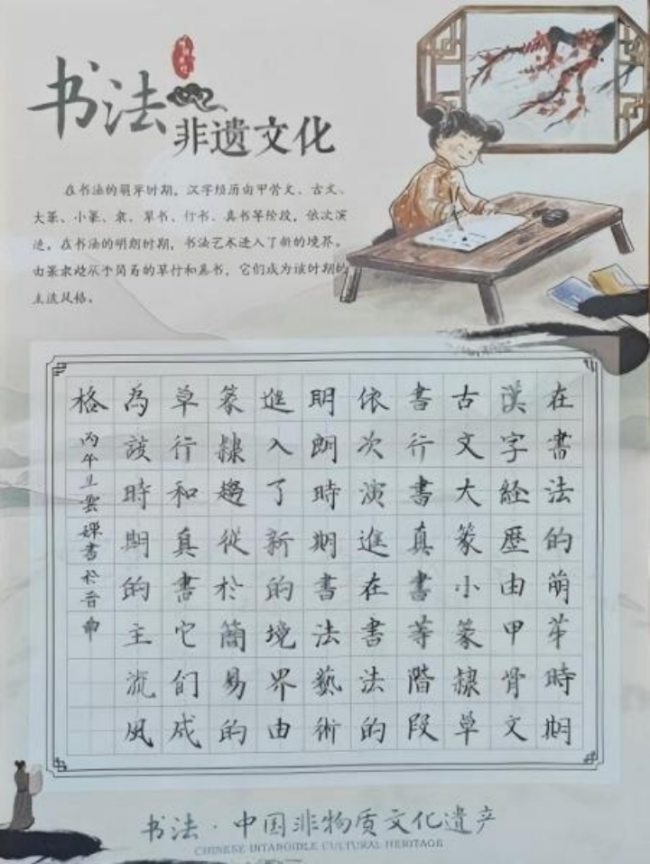 书法
非遗文化
在书法的萌芽时期，汉字经历由甲骨文、古文、
大篆、小篆、隶、草书、行书、真书等阶段，依次演
进。在书法的明朗时期，书法艺术进入了新的境界。
由篆隶趋从于简易的草行和真书，它们成为该时期的
主流风格。
在書法的萌芽時期
漢字經歷由甲骨文
古文大篆小篆隸草
書行書真書等階段
依次演進在書法的
明朗時期書法藝術
進入了新的境界由
篆隸趨從於簡易的
草行和真書它們成
為該時期的主流風
格
丙午雲書於晋
书法·中国非物质文化遗产
CHINESE INTANGIBLE CULTURAL HERITAGE